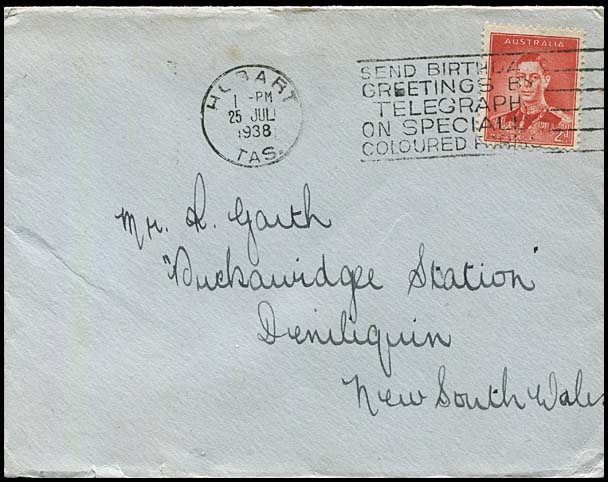 AUSTRALIA
2d
HOBART
1 -PM
25 JUL
1938
TAS.
SEND BIRTHDA
GREETINGS BY
TELEGRAPH
ON SPECIALL
COLOURED
Mr. R. Garth
"Puckawidgee Station"
Deniliquin
New South Wales